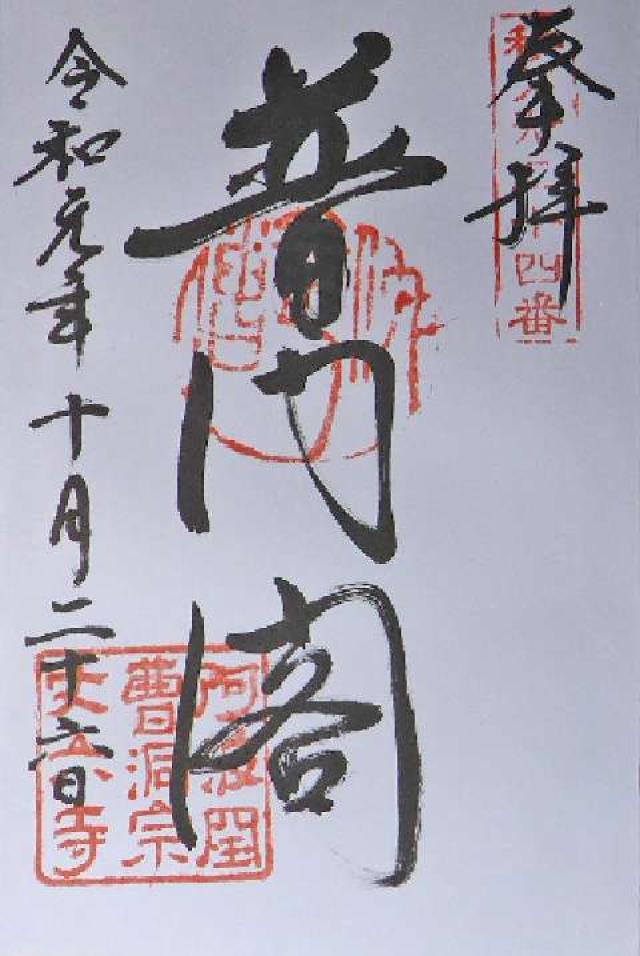 奉拝
四番
普門閣
令和元年十月二十六日
阿波國
曹洞宗
丈六寺